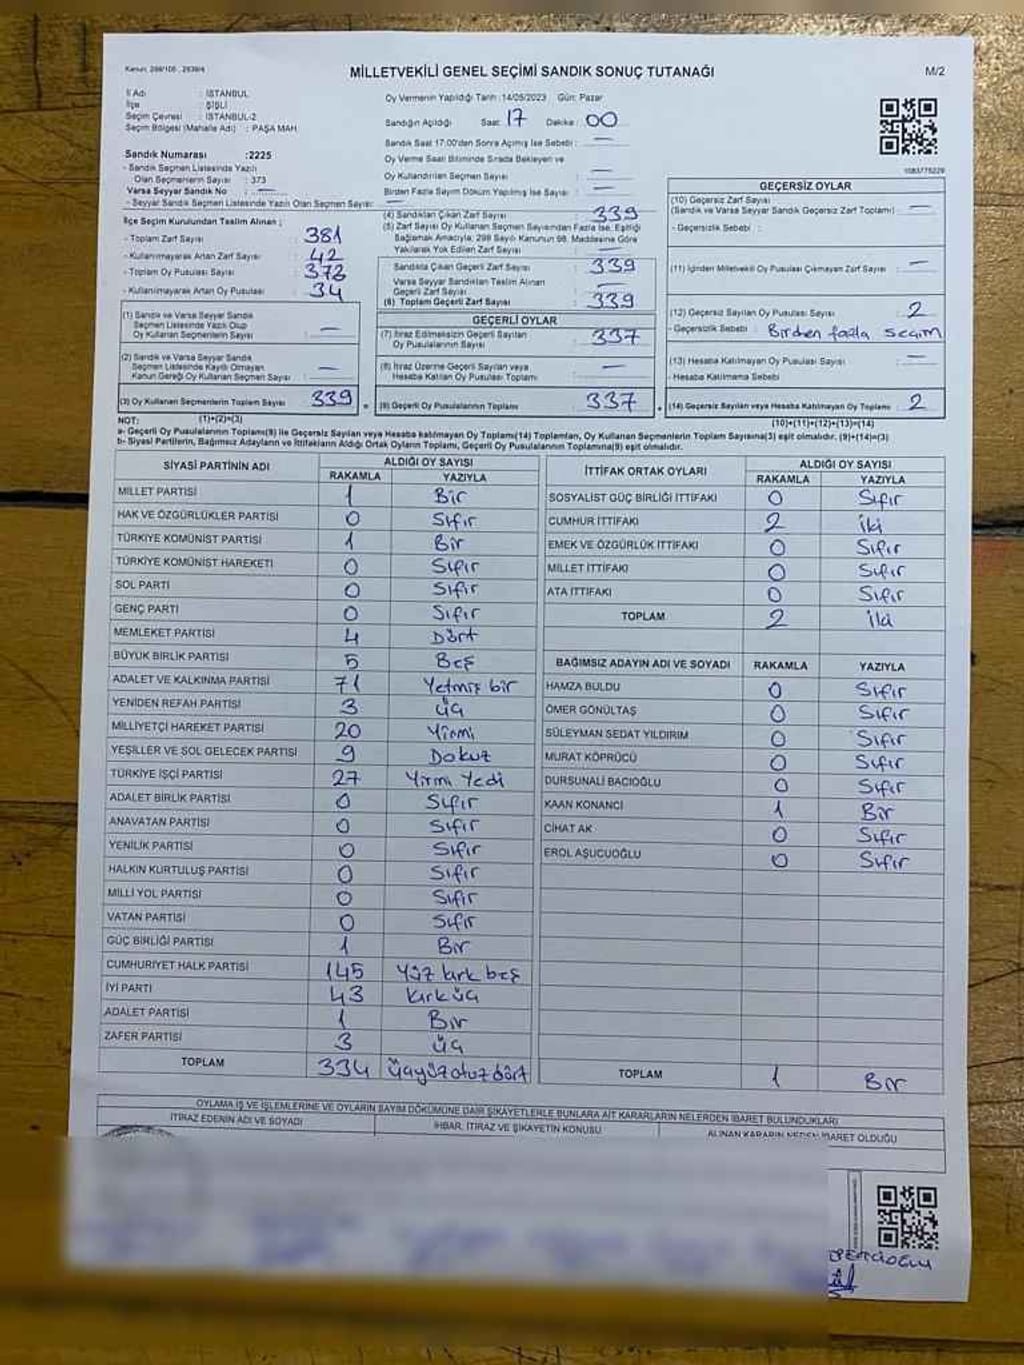 Kanun: 298/105 , 2839/4
MİLLETVEKİLİ GENEL SEÇİMİ SANDIK SONUÇ TUTANAĞI
M/2
İl Adı : İSTANBUL
İlçe : ŞİŞLİ
Seçim Çevresi : İSTANBUL-2
Seçim Bölgesi (Mahalle Adı) : PAŞA MAH.
Oy Vermenin Yapıldığı Tarih :14/05/2023 Gün: Pazar
Sandığın Açıldığı Saat: 17 Dakika: 00
Sandık Saat 17:00'den Sonra Açılmış İse Sebebi : —
Oy Verme Saati Bitiminde Sırada Bekleyen ve
Oy Kullandırılan Seçmen Sayısı : —
Birden Fazla Sayım Döküm Yapılmış İse Sayısı : —
Sandık Numarası :2225
- Sandık Seçmen Listesinde Yazılı
Olan Seçmenlerin Sayısı : 373
Varsa Seyyar Sandık No : —
- Seyyar Sandık Seçmen Listesinde Yazılı Olan Seçmen Sayısı: —
İlçe Seçim Kurulundan Teslim Alınan ;
- Toplam Zarf Sayısı : 381
- Kullanılmayarak Artan Zarf Sayısı : 42
- Toplam Oy Pusulası Sayısı : 373
- Kullanılmayarak Artan Oy Pusulası : 34
(1) Sandık ve Varsa Seyyar Sandık
Seçmen Listesinde Yazılı Olup
Oy Kullanan Seçmenlerin Sayısı : —
(2) Sandık ve Varsa Seyyar Sandık
Seçmen Listesinde Kayıtlı Olmayan
Kanun Gereği Oy Kullanan Seçmen Sayısı : —
(3) Oy Kullanan Seçmenlerin Toplam Sayısı 339
(4) Sandıktan Çıkan Zarf Sayısı : 339
(5) Zarf Sayısı Oy Kullanan Seçmen Sayısından Fazla İse, Eşitliği
Sağlamak Amacıyla; 298 Sayılı Kanunun 98. Maddesine Göre
Yakılarak Yok Edilen Zarf Sayısı : —
Sandıkta Çıkan Geçerli Zarf Sayısı : 339
Varsa Seyyar Sandıktan Teslim Alınan
Geçerli Zarf Sayısı : —
(6) Toplam Geçerli Zarf Sayısı : 339
GEÇERLİ OYLAR
(7) İtiraz Edilmeksizin Geçerli Sayılan
Oy Pusulalarının Sayısı : 337
(8) İtiraz Üzerine Geçerli Sayılan veya
Hesaba Katılan Oy Pusulaları Toplamı : —
(9) Geçerli Oy Pusulalarının Toplamı : 337
1083775229
GEÇERSİZ OYLAR
(10) Geçersiz Zarf Sayısı
(Sandık ve Varsa Seyyar Sandık Geçersiz Zarf Toplamı) : —
- Geçersizlik Sebebi :
(11) İçinden Milletvekili Oy Pusulası Çıkmayan Zarf Sayısı : —
(12) Geçersiz Sayılan Oy Pusulası Sayısı : 2
- Geçersizlik Sebebi : Birden fazla seçim
(13) Hesaba Katılmayan Oy Pusulası Sayısı : —
- Hesaba Katılmama Sebebi
(14) Geçersiz Sayılan veya Hesaba Katılmayan Oy Toplamı : 2
NOT: (1)+(2)=(3) (10)+(11)+(12)+(13)=(14)
a- Geçerli Oy Pusulalarının Toplamı(9) ile Geçersiz Sayılan veya Hesaba katılmayan Oy Toplamı(14) Toplamları, Oy Kullanan Seçmenlerin Toplam Sayısına(3) eşit olmalıdır. (9)+(14)=(3)
b- Siyasi Partilerin, Bağımsız Adayların ve İttifakların Aldığı Ortak Oyların Toplamı, Geçerli Oy Pusulalarının Toplamına(9) eşit olmalıdır.
SİYASİ PARTİNİN ADI ALDIĞI OY SAYISI
RAKAMLA YAZIYLA
MİLLET PARTİSİ 1 Bir
HAK VE ÖZGÜRLÜKLER PARTİSİ 0 Sıfır
TÜRKİYE KOMÜNİST PARTİSİ 1 Bir
TÜRKİYE KOMÜNİST HAREKETİ 0 Sıfır
SOL PARTİ 0 Sıfır
GENÇ PARTİ 0 Sıfır
MEMLEKET PARTİSİ 4 Dört
BÜYÜK BİRLİK PARTİSİ 5 Beş
ADALET VE KALKINMA PARTİSİ 71 Yetmiş bir
YENİDEN REFAH PARTİSİ 3 üç
MİLLİYETÇİ HAREKET PARTİSİ 20 Yirmi
YEŞİLLER VE SOL GELECEK PARTİSİ 9 Dokuz
TÜRKİYE İŞÇİ PARTİSİ 27 Yirmi Yedi
ADALET BİRLİK PARTİSİ 0 Sıfır
ANAVATAN PARTİSİ 0 Sıfır
YENİLİK PARTİSİ 0 Sıfır
HALKIN KURTULUŞ PARTİSİ 0 Sıfır
MİLLİ YOL PARTİSİ 0 Sıfır
VATAN PARTİSİ 0 Sıfır
GÜÇ BİRLİĞİ PARTİSİ 1 Bir
CUMHURİYET HALK PARTİSİ 145 Yüz kırk beş
İYİ PARTİ 43 kırk üç
ADALET PARTİSİ 1 Bir
ZAFER PARTİSİ 3 üç
TOPLAM 334 üçyüzotuzdört
İTTİFAK ORTAK OYLARI ALDIĞI OY SAYISI
RAKAMLA YAZIYLA
SOSYALİST GÜÇ BİRLİĞİ İTTİFAKI 0 Sıfır
CUMHUR İTTİFAKI 2 iki
EMEK VE ÖZGÜRLÜK İTTİFAKI 0 Sıfır
MİLLET İTTİFAKI 0 Sıfır
ATA İTTİFAKI 0 Sıfır
TOPLAM 2 iki
BAĞIMSIZ ADAYIN ADI VE SOYADI RAKAMLA YAZIYLA
HAMZA BULDU 0 Sıfır
ÖMER GÖNÜLTAŞ 0 Sıfır
SÜLEYMAN SEDAT YILDIRIM 0 Sıfır
MURAT KÖPRÜCÜ 0 Sıfır
DURSUNALİ BACIOĞLU 0 Sıfır
KAAN KONANCI 1 Bir
CİHAT AK 0 Sıfır
EROL AŞUCUOĞLU 0 Sıfır
TOPLAM 1 Bir
OYLAMA İŞ VE İŞLEMLERİNE VE OYLARIN SAYIM DÖKÜMÜNE DAİR ŞİKAYETLERLE BUNLARA AİT KARARLARIN NELERDEN İBARET BULUNDUKLARI
İTİRAZ EDENİN ADI VE SOYADI İHBAR, İTİRAZ VE ŞİKAYETİN KONUSU ALINAN KARARIN NEDEN İBARET OLDUĞU